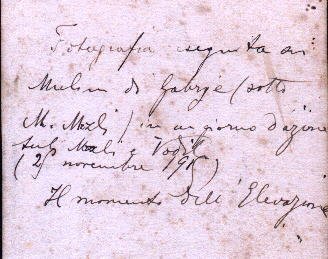 Fotografia eseguita ai
Mulini di Gabrje (sotto
M. Mrzli) in un giorno d'azione
sul Mrzli e Vodil
(2 novembre 1915)
Il momento dell'Elevazione